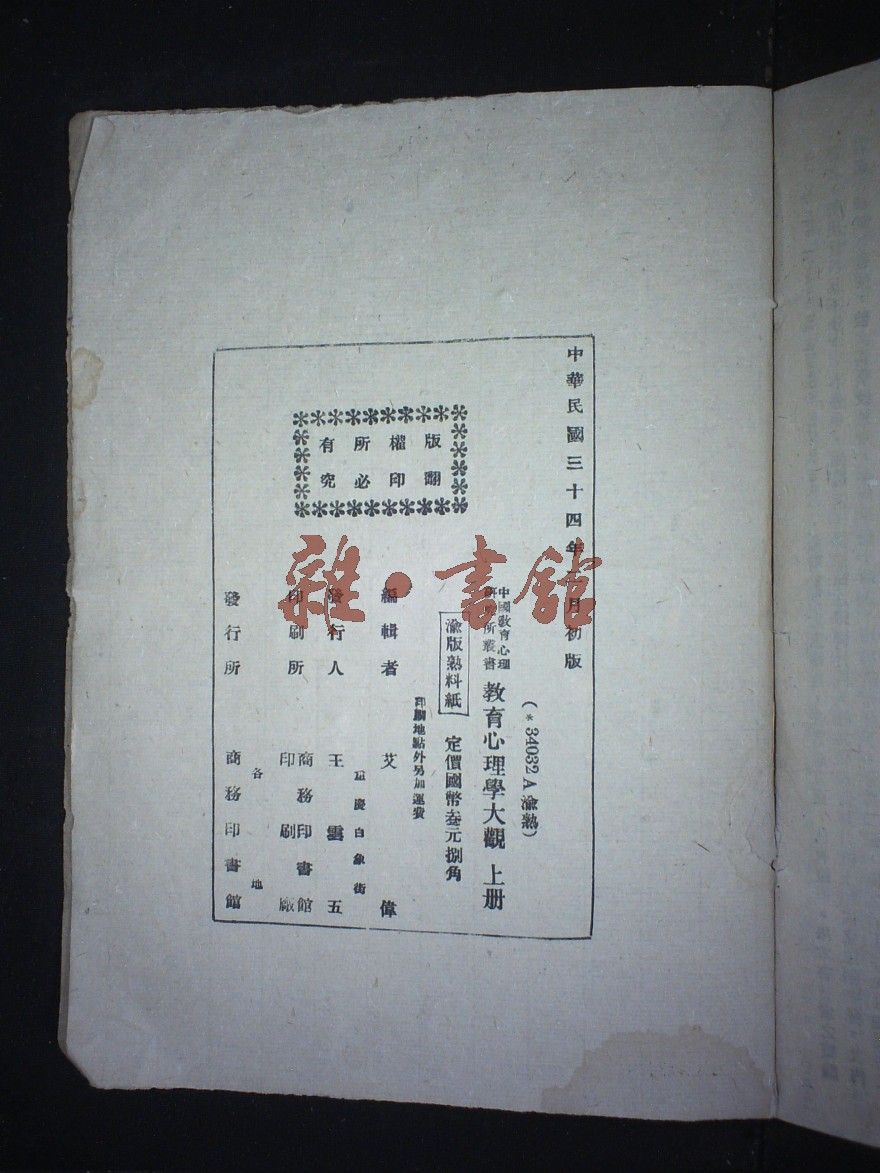 中華民國三十四年 月初版
(*34032A渝熟)
中國教育心理
研究所叢書
教育心理學大觀 上册
渝版熟料紙
定價國幣叁元捌角
印刷地點外另加運費
編輯者 艾偉
重慶白象街
發行人 王雲五
印刷所 商務印書館
印刷廠
各地
發行所 商務印書館
版權所有
翻印必究
雜·書館